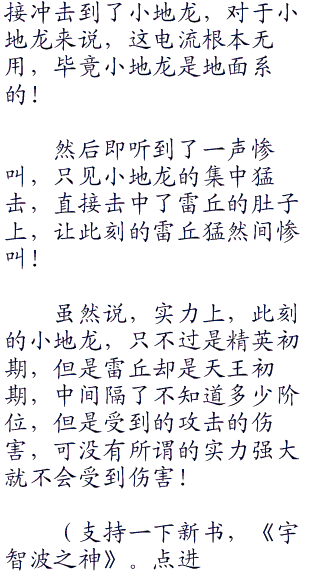 接冲击到了小地龙，对于小
地龙来说，这电流根本无
用，毕竟小地龙是地面系
的！
然后即听到了一声惨
叫，只见小地龙的集中猛
击，直接击中了雷丘的肚子
上，让此刻的雷丘猛然间惨
叫！
虽然说，实力上，此刻
的小地龙，只不过是精英初
期，但是雷丘却是天王初
期，中间隔了不知道多少阶
位，但是受到的攻击的伤
害，可没有所谓的实力强大
就不会受到伤害！
（支持一下新书，《宇
智波之神》。点进